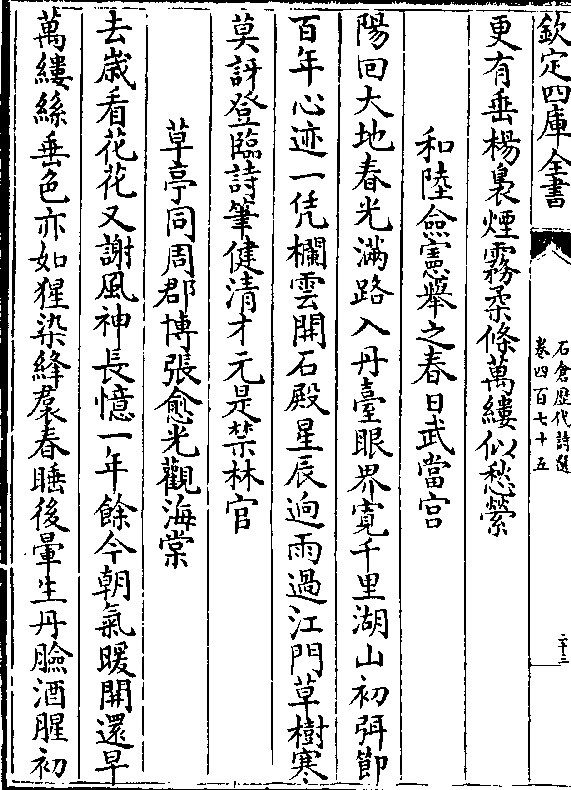 欽定四庫全書
石倉歷代詩選
卷四百七十五
二十三
更有垂楊裊煙霧柔條萬縷似愁縈
和陸僉憲舉之春日武當宮
陽回大地春光滿路入丹臺眼界寛千里湖山初弭節
百年心迹一凭欄雲開石殿星辰逈雨過江門草樹寒
莫訝登臨詩筆健清才元是禁林官
草亭同周郡博張愈光觀海棠
去歲看花花又謝風神長憶一年餘今朝氣暖開還早
萬縷絲垂色亦如猩染絳羣春睡後暈生丹臉酒腥初